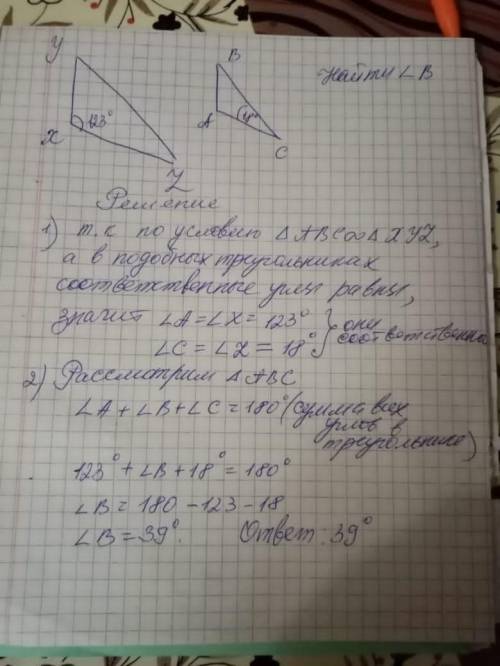 Y
B
Найти ∠B
X 123°
A
C
Z
Решение
1) т.к по условию △ABC∞△XYZ,
а в подобных треугольниках
соответственные углы равны,
значит ∠A=∠X=123° } они
∠C=∠Z=18° соответственны
2) Рассмотрим △ABC
∠A+∠B+∠C=180° (сумма всех
углов в
треугольнике)
123°+∠B+18°=180°
∠B=180-123-18
∠B=39°. Ответ: 39°